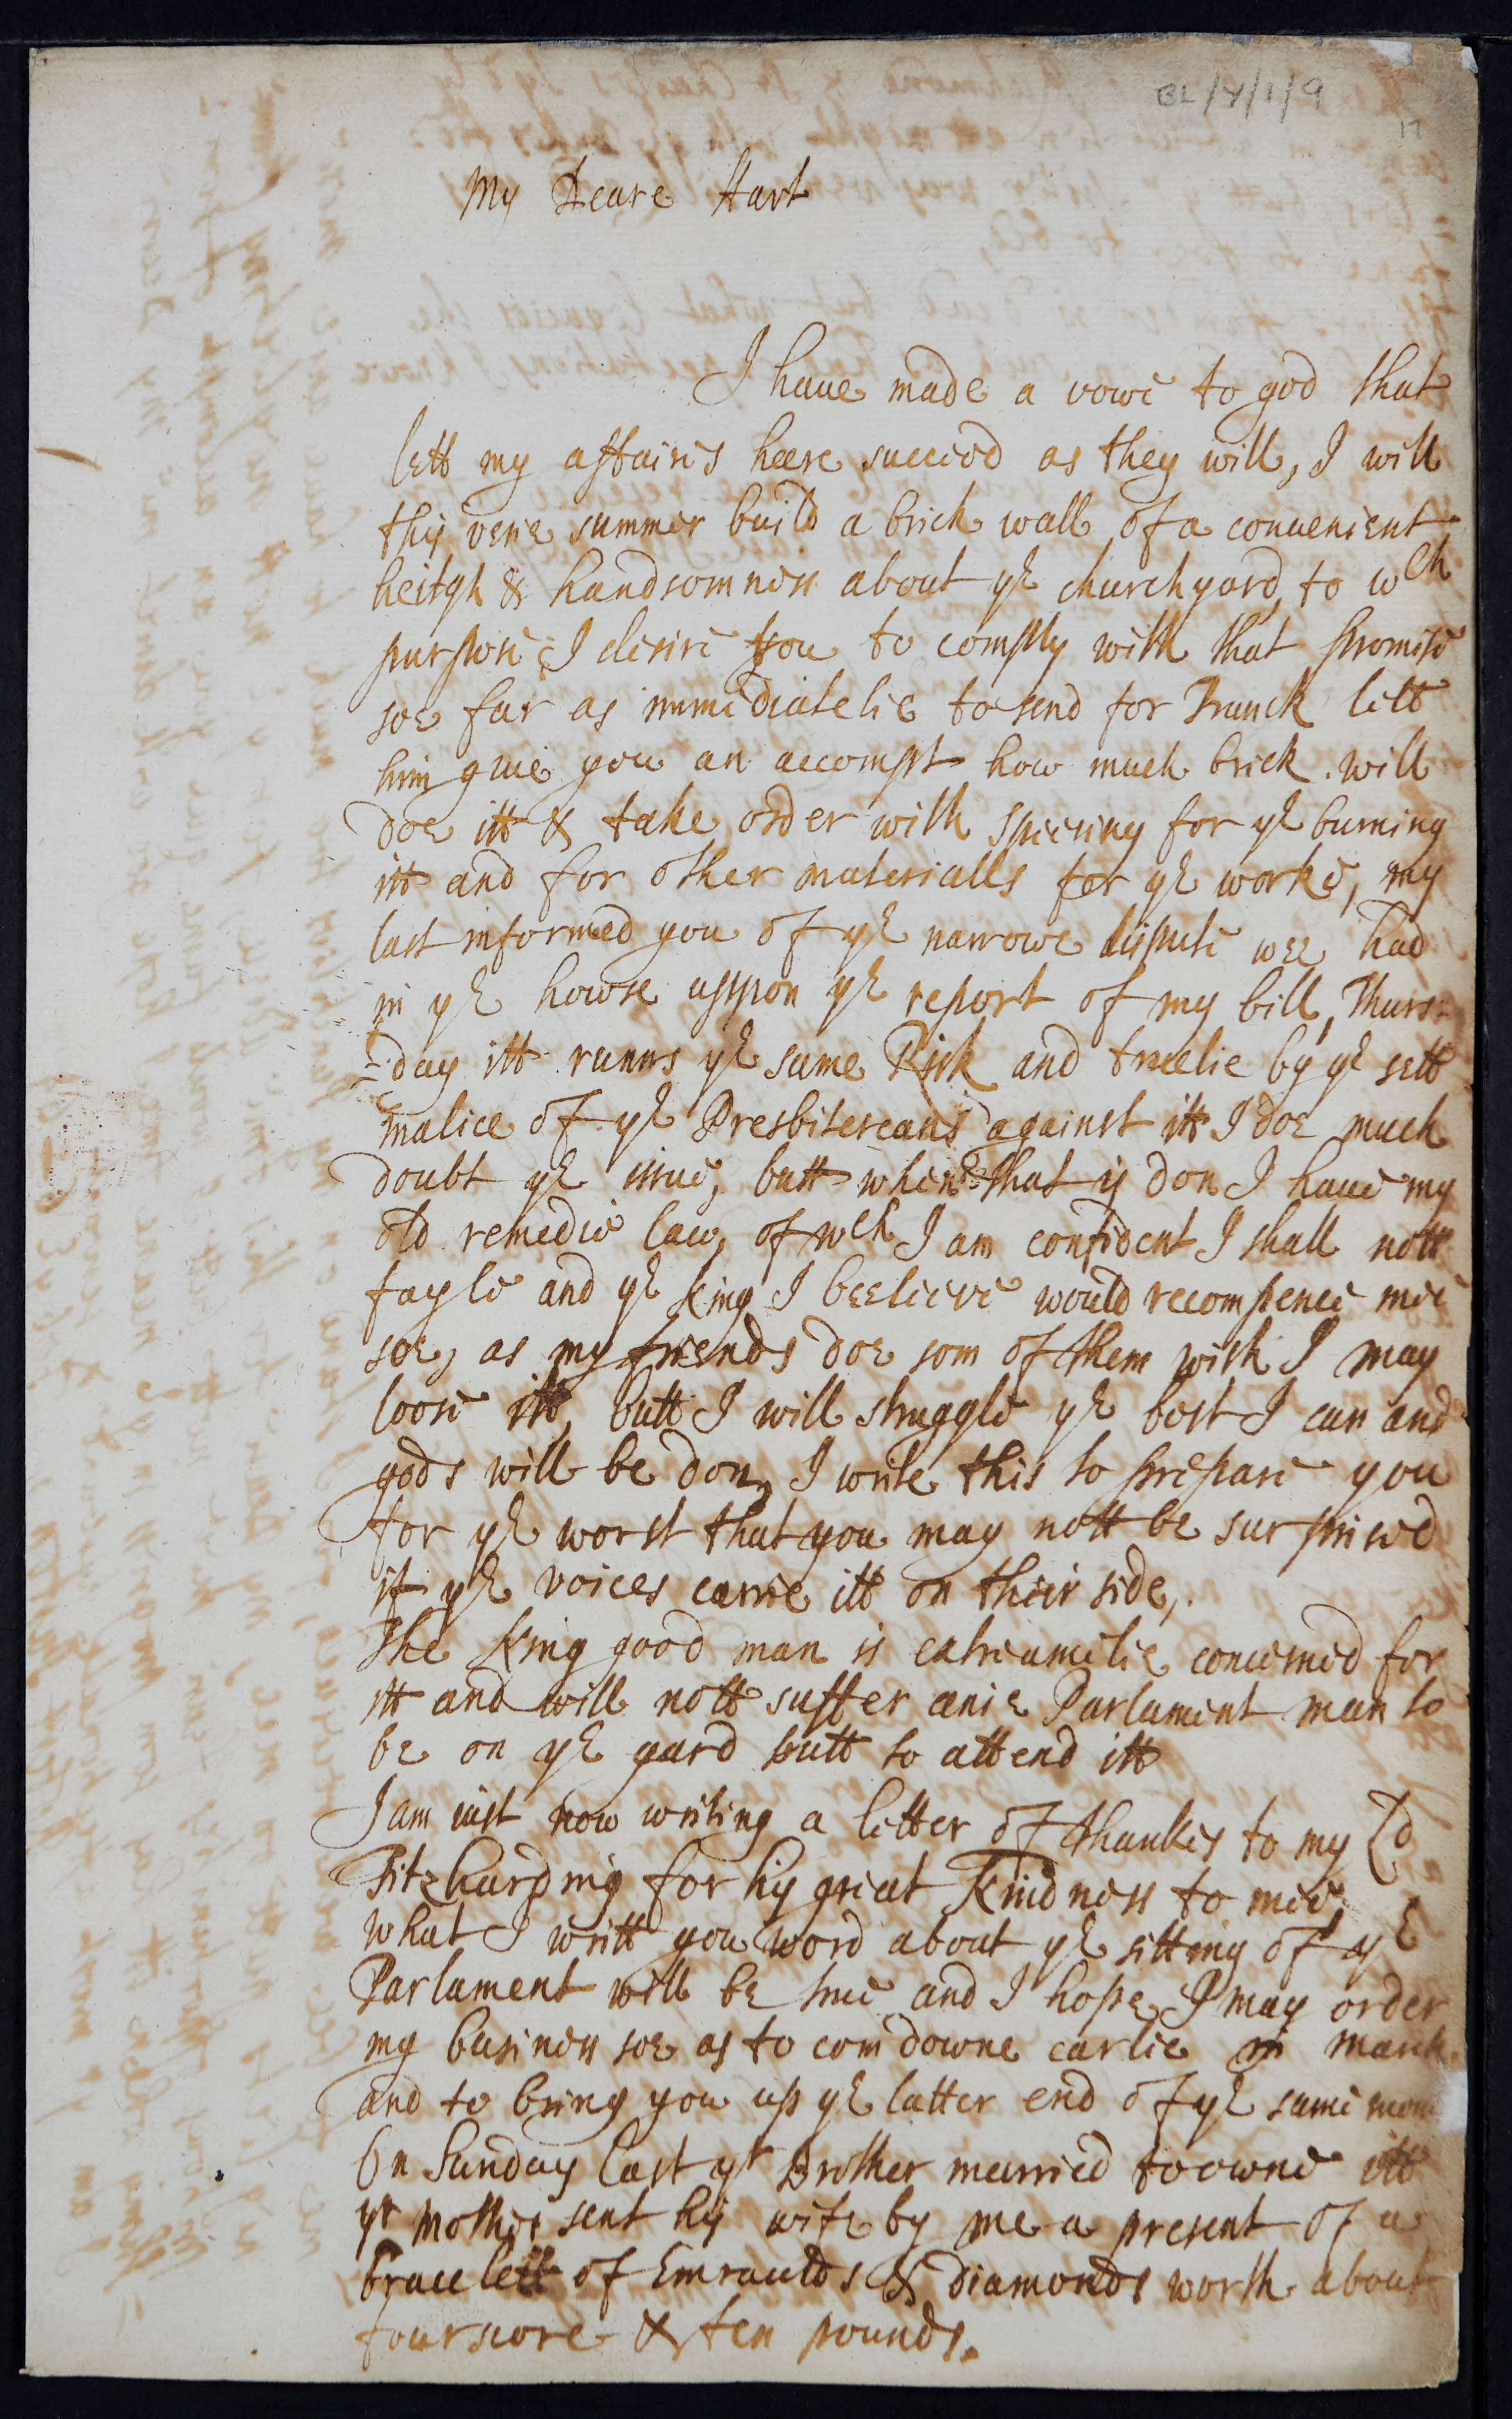 BL/Y/1/9
17
My Deare Hart
I haue made a vowe to god that
lett my affaires heere succeed as they will, I will
this verie summer build a brick wall of a conuenient
heitgh & handsomness about ye churchyard, to wch
purpose I desire you to comply with that promise
soe far as immediatelie to send for Franck lett
him giue you an accompt how much brick will
doe itt & take order with Speering for ye burning
itt and for other materialls for ye worke, my
last informed you of ye narrowe dispute wee had
in ye howse uppon ye report of my bill, Thurs=
=day itt runns ye same Risk and truelie by ye sett
malice of ye Presbitereans against itt I doe much
doubt ye issue, butt when that is don I haue my
old remedie law, of wch I am confident I shall nott
fayle and ye King I beelieve would recompence mee
soe, as my friends doe som of them wish I may
loose itt, butt I will struggle ye best I can and
gods will be don, I write this to prepare you
for ye worst that you may nott be surprised
if ye voices carrie itt on their side,
The King good man is extreamelie concerned for
itt and will nott suffer anie Parlament man to
be on ye gard butt to attend itt
I am iust now writing a letter of thankes to my Ld
Fitzharding for his great Kindness to mee,
what I writt you word about ye sitting of ye
Parlament will be true and I hope I may order
my business soe as to com downe earlie in march
and to bring you up ye latter end of ye same
On Sunday last yr Brother married to owne itt
yr mother sent his wife by me a present of a
bracelett of Emraulds & Diamonds worth about
fourscore & ten pounds.